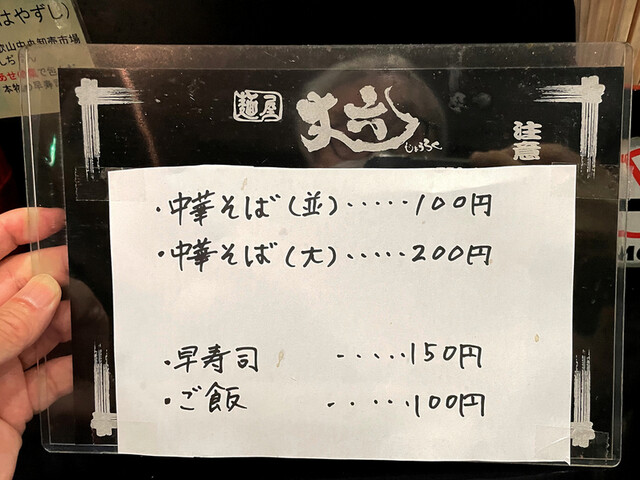 はやずし)
歌山中央卸売市場
麺屋
丈六
じょうろく
注意
・中華そば(並)・・・・・100円
・中華そば(大)・・・・・200円
・早寿司 ・・・・・150円
・ご飯 ・・・・・100円